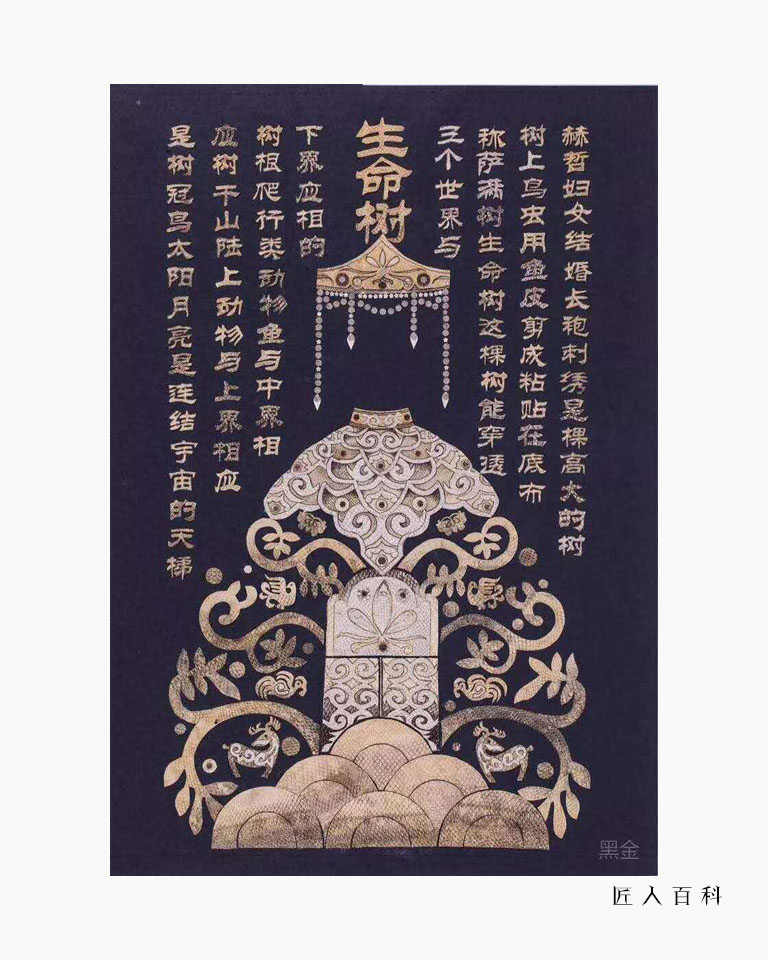 生命树
赫哲妇女结婚长袍刺绣是棵高大的树
树上鸟虫用鱼皮剪成粘贴在底布
称萨满树生命树这棵树能穿透
三个世界与
下界应相的
树根爬行类动物鱼与中界相
应树干山陆上动物与上界相应
是树冠鸟太阳月亮是连结宇宙的天梯
黑金
匠人百科